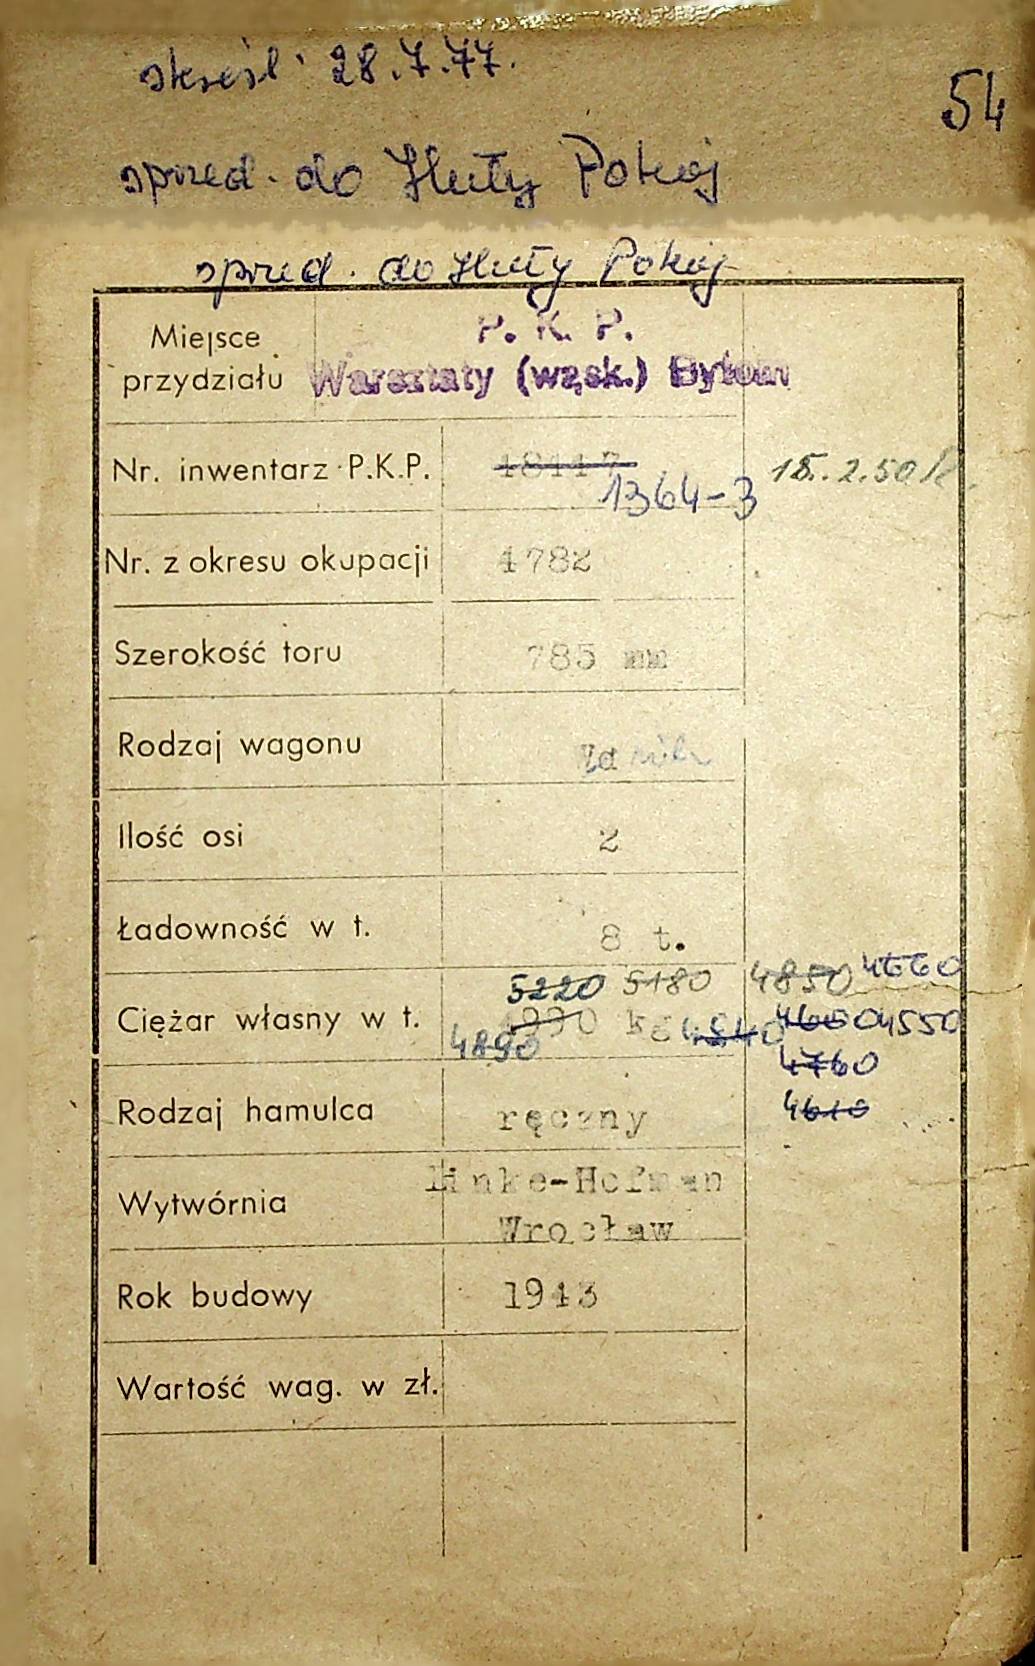 skreśl. 28.7.77.
54
sprzed. do Huty Pokój
sprzed. do Huty Pokój
Miejsce
przydziału
P. K. P.
Warsztaty (wąsk.) Bytom
Nr. inwentarz P.K.P.
1364-3
15.2.50
Nr. z okresu okupacji 4782
Szerokość toru 785 mm
Rodzaj wagonu
Ilość osi 2
Ładowność w t. 8 t.
5220 5180 4850 4660
Ciężar własny w t. 4990 kg 4840 4660 4550
4890 4760
4610
Rodzaj hamulca ręczny
Wytwórnia
Linke-Hofman
Wrocław
Rok budowy 1943
Wartość wag. w zł.